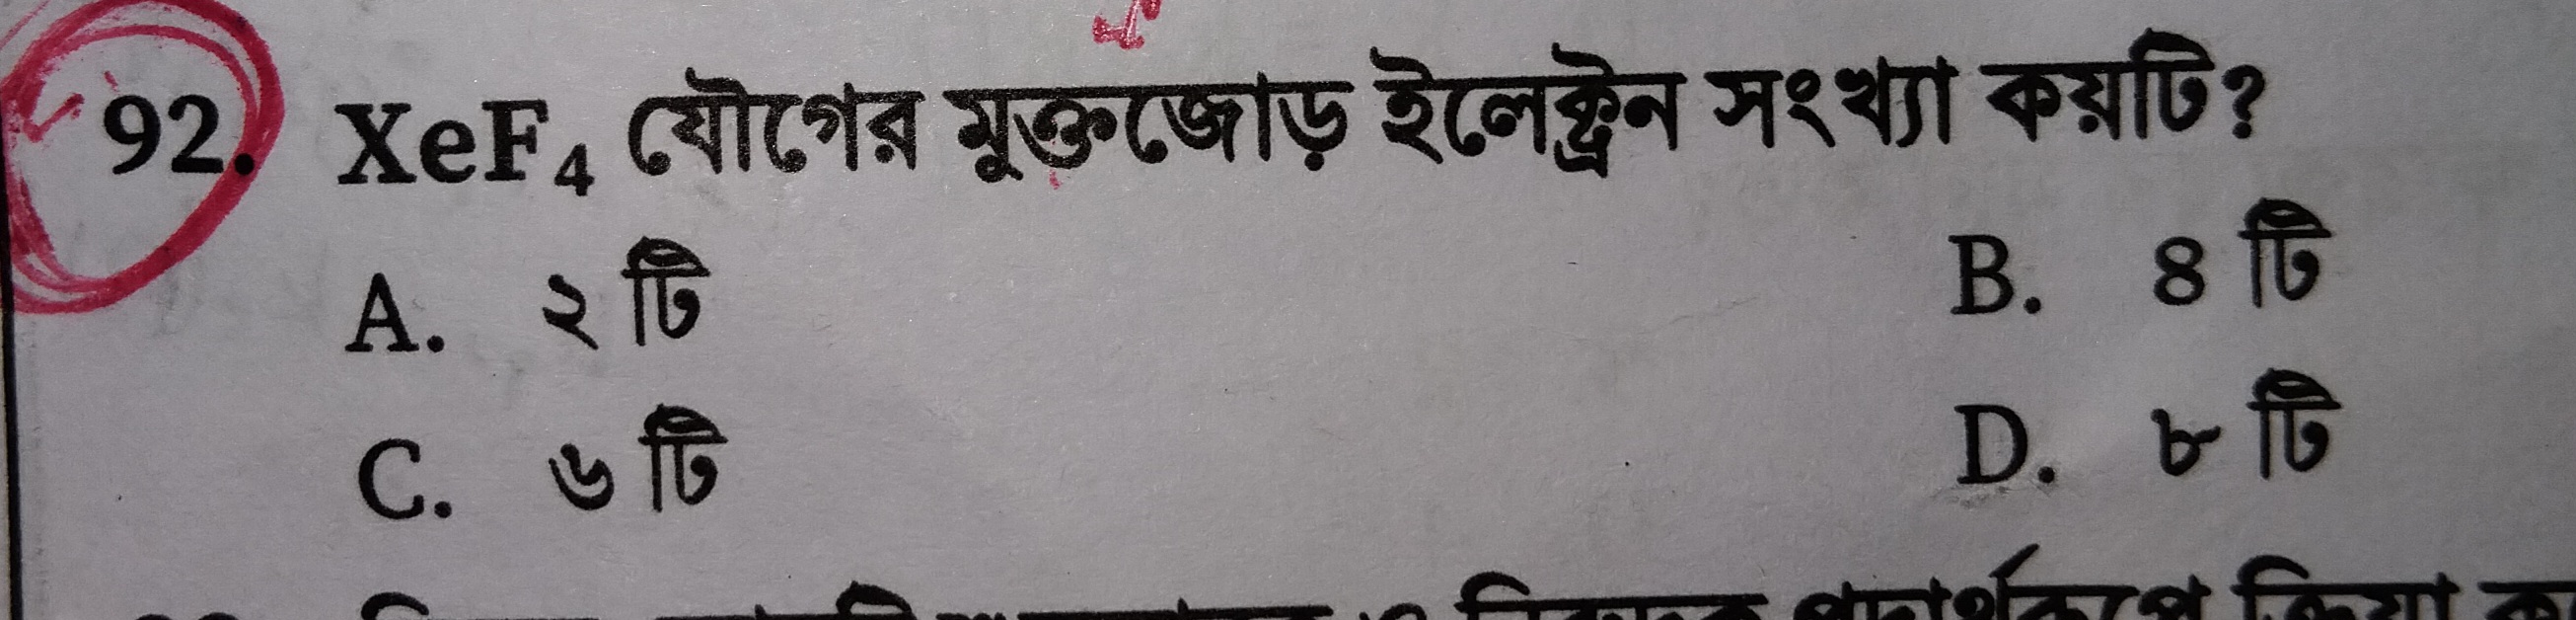 92. XeF₄ যৌগের মুক্তজোড় ইলেক্ট্রন সংখ্যা কয়টি?
A. ২ টি B. ৪ টি
C. ৬ টি D. ৮ টি